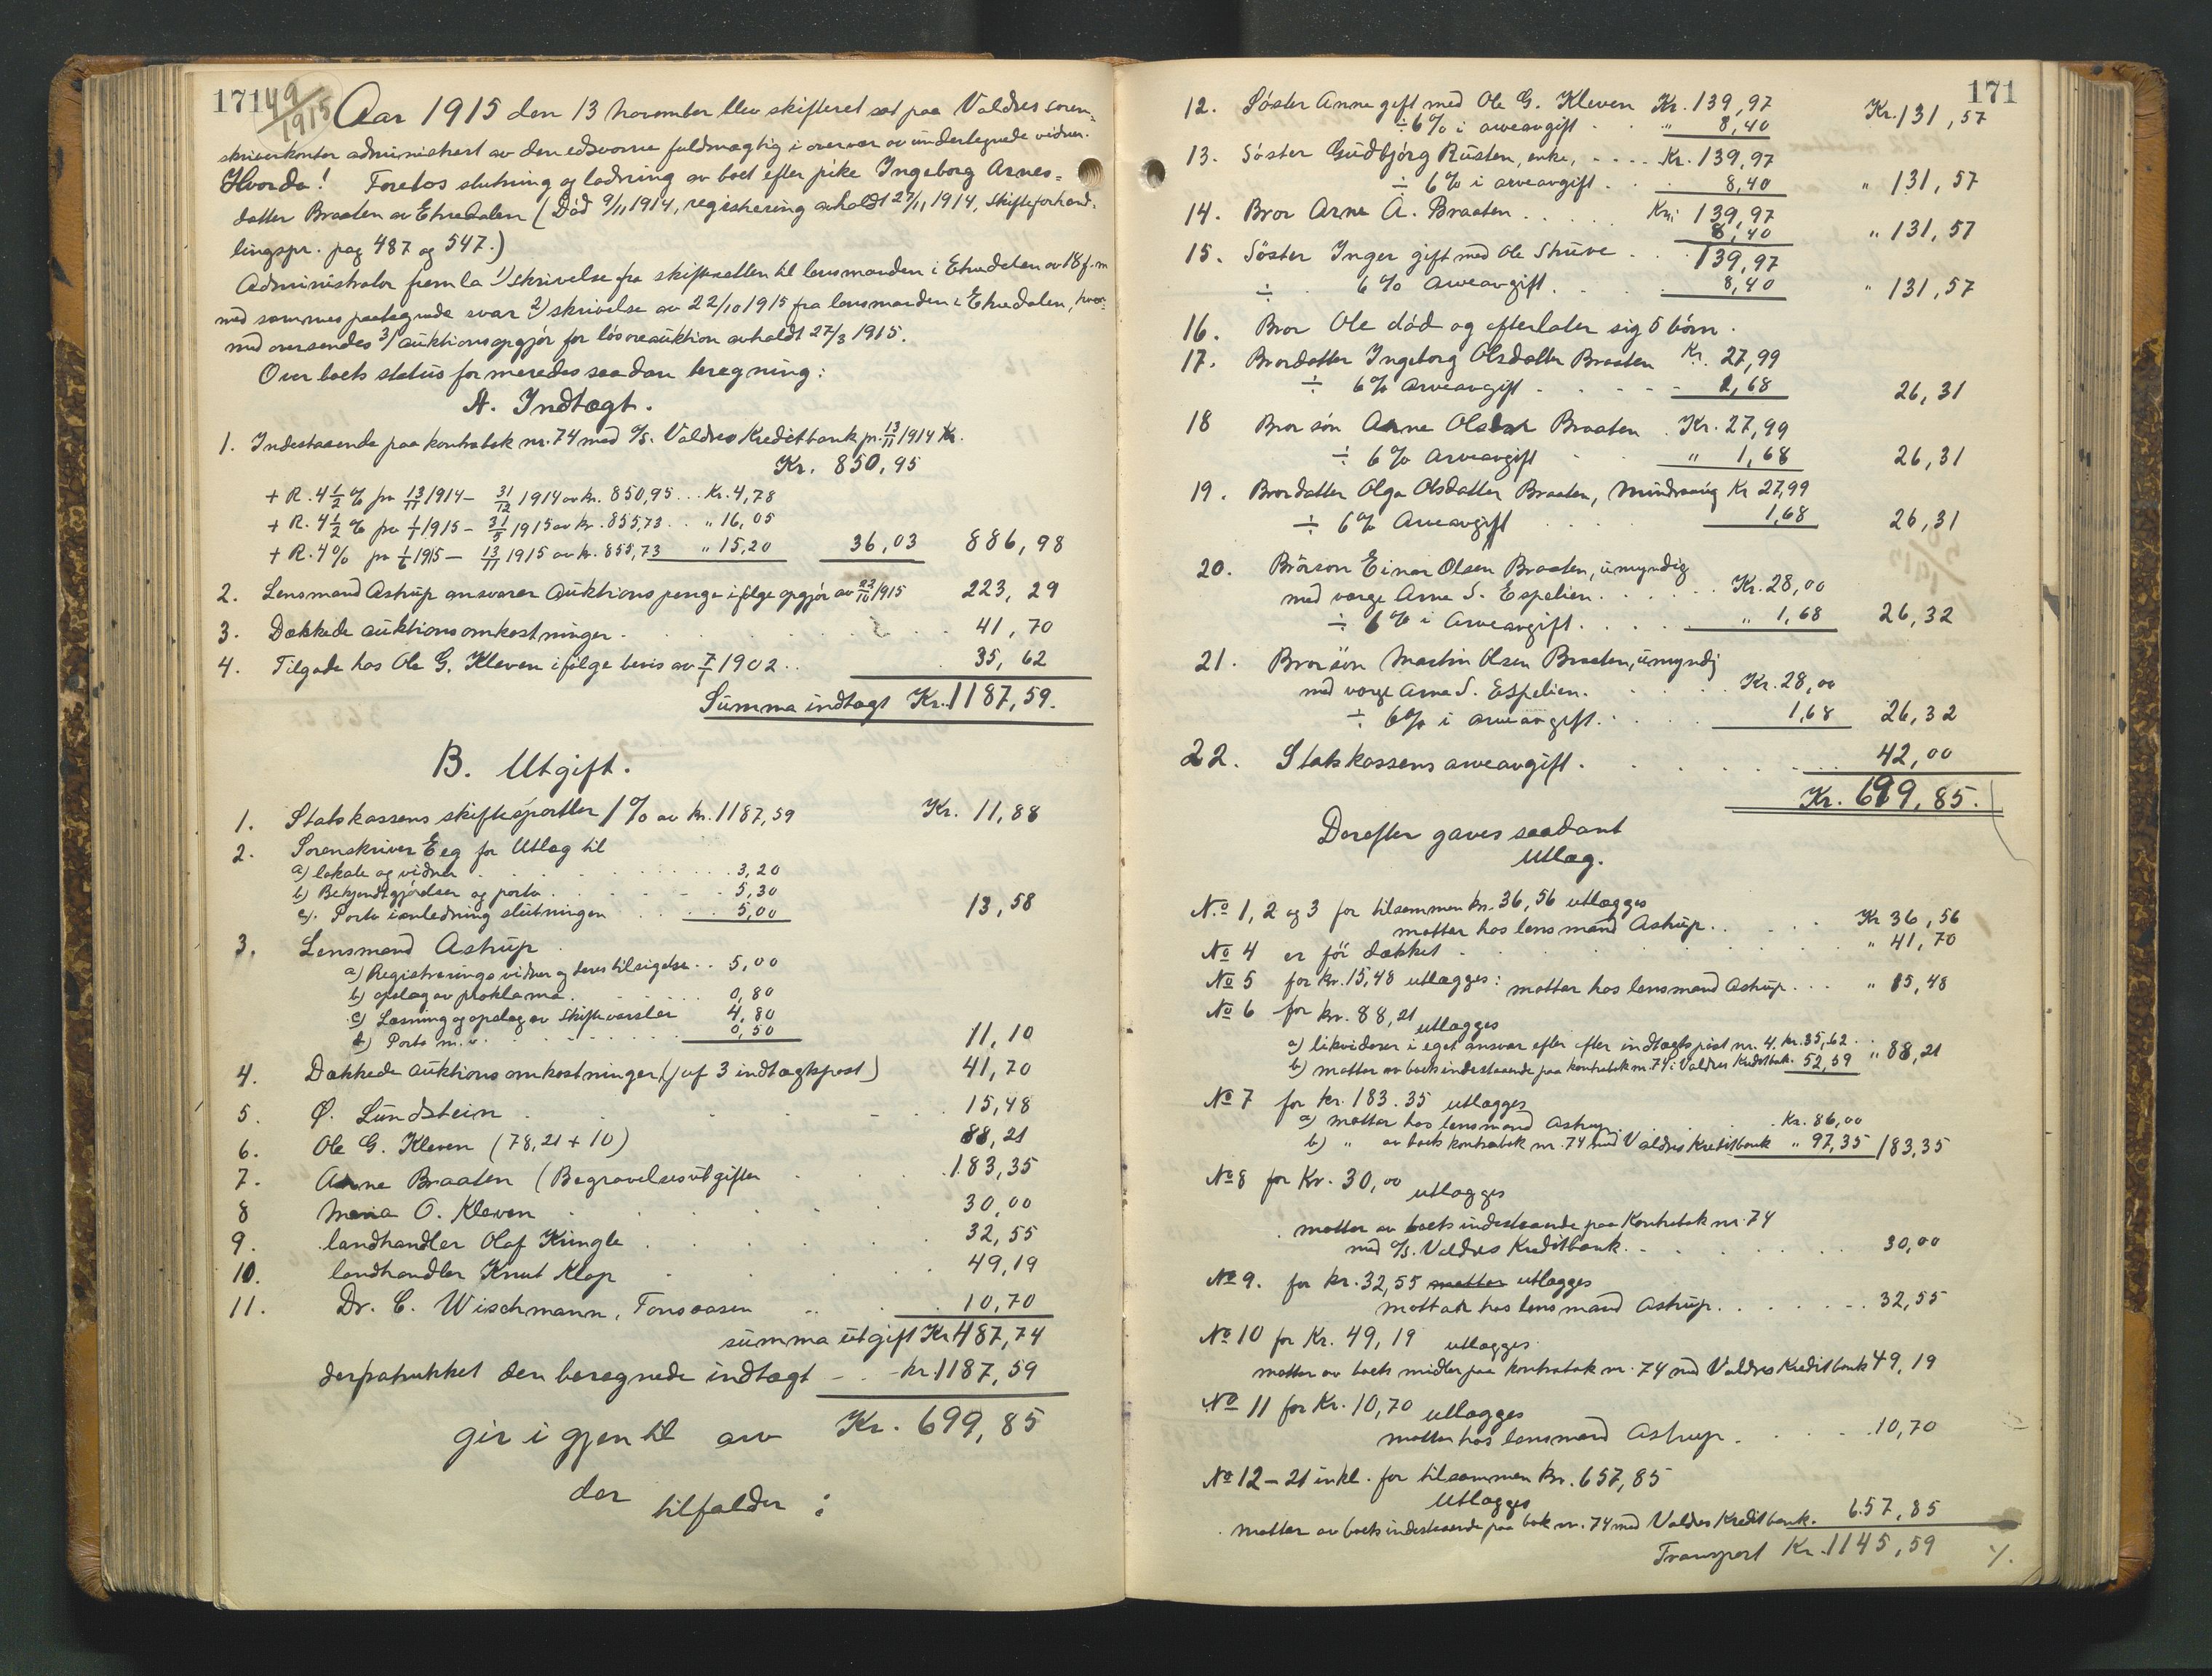 171
49/1915
Aar 1915 den 13 november blev skifteret sat paa Valdres soren=
skriverkontor administrert av den edsvorne fuldmægtig i overvær av undertegnede vidner.
Hvorda! Foretos slutning og lodning av boet efter pike Ingeborg Arnes=
datter Braaten av Etnedalen (Död 9/11 1914, registrering avholdt 27/11 1914, Skifteforhand=
lingspr. pag 487 og 547.)
Administrator fremla 1) skrivelse fra skifteretten til lensmanden i Etnedalen av 18 f.m
med sammes paategnede svar 2) skrivelse av 22/10 1915 fra lensmanden i Etnedalen, hvor=
med oversendes 3) auktionsopgjör for lösöreauktion avholdt 27/3 1915.
Over boets status formeredes saadan beregning:
A. Indtægt.
1. Indestaaende paa kontrabok nr. 74 med A/S. Valdres Kreditbank pr. 13/11 1914 Kr.
Kr. 850,95
+ R. 4 1/2 % fra 13/11 1914 – 31/12 1914 av kr. 850,95 ... Kr. 4,78
+ R. 4 1/2 % fra 1/1 1915 – 31/5 1915 av kr. 855,73 .. " 16,05
+ R. 4 % fra 1/6 1915 – 13/11 1915 av kr. 855,73 " 15,20 36,03 886,98
2. Lensmand Astrup ansvarer Auktionspenge ifölge opgjör av 22/10 1915 223,29
3. Dækkede auktionsomkostninger . . . 41,70
4. Tilgode hos Ole G. Kleven ifölge bevis av 7/1 1902 .. 35,62
Summa indtægt Kr. 1187,59.
B. Utgift.
1. Statskassens skiftesportler 1 % av kr. 1187,59 Kr. 11,88
2. Sorenskriver Eeg for Utlæg til
a) lokale og vidner . . . 3,20
b) Bekjendtgjördelser og porto . . . 5,30
c). Porto i anledning slutningen . . . 5,00 13,58
3. Lensmand Astrup
a) Registreringsvidner og deres tilsigelse .. 5,00
b) opslag av proklama . . . 0,80
c) Læsning og opslag av skiftevarsler 4,80
d) Porto m.v. . . . 0,50 11,10
4. Dækkede auktionsomkostninger (jvf 3 indtægtspost) 41,70
5. Ø. Lundstein . . . 15,48
6. Ole G. Kleven (78,21 + 10) 88,21
7. Arne Braaten (Begravelsesutgifter . . 183,35
8 Maria O. Kleven . . . 30,00
9. landhandler Olaf Kringle . . . 32,55
10. landhandler Knut Klop . . . 49,19
11. Dr. C. Wischmann, Tonsaasen .. . 10,70
summa utgift Kr 487,74
derfratrukket den beregnede indtægt – . - kr. 1187,59
gir i gjen til arv Kr. 699,85
der tilfalder :
171
12. Söster Anne gift med Ole G. Kleven Kr. 139,97
÷ 6% i arveavgift . . " 8,40 Kr. 131,57
13. Söster Gudbjörg Rusten, enke, . . . . Kr. 139,97
÷ 6% i arveavgift . . . 8,40 " 131,57
14. Bror Arne A. Braaten . . . . Kr. 139,97
8,40 " 131,57
15. Söster Inger gift med Ole Struve . . 139,97
÷ . 6% arveavgift. . . 8,40 " 131,57
16. Bror Ole död og efterlater sig 5 börn .
17. Brordatter Ingeborg Olsdatter Braaten Kr. 27,99
÷ 6% arveavgift . . . 1,68 26,31
18 Bror sön Arne Olsen Braaten . Kr. 27,99
÷ 6% arveavgift . . " 1,68 26,31
19. Brordatter Olga Olsdatter Braaten, mindreaarig Kr 27,99
÷ 6% Arveavgift . . . 1,68 26,31
20. Brörson Einar Olsen Braaten, umyndig
med verge Arne S. Espelien . . . . Kr. 28,00
÷ 6% i Arveavgift. . . . " 1,68 26,32
21. Bror sön Martin Olsen Braaten, umyndig
med verge Arne S. Espelien. . . . Kr. 28,00
÷ 6% i arveavgift. . . 1,68 26,32
22. Statskassens arveavgift . . . 42,00
Kr. 699,85.
Derefter gaves saadant
Utlæg.
No 1, 2 og 3 for tilsammen kr. 36,56 utlægges
mottar hos lensmand Astrup. . . . Kr 36,56
No 4 er för dækket . . . " 41,70
No 5 for kr. 15,48 utlægges: mottar hos lensmand Astrup . . . " 15,48
No 6 for kr. 88,21 utlægges
a) likviderer i eget ansvar efter efter indtægtspost nr. 4. kr. 35,62 .
b) mottar av boets indestaaende paa kontrabok nr. 74 i Valdres Kreditbank. 52,59 " 88,21
No 7 for kr. 183.35 utlægges
a) mottar hos lensmand Astrup . . . Kr. 86,00
b) " av boets kontrabok nr. 74 med Valdres Kreditbank " 97,35 183,35
No 8 for Kr. 30,00 utlægges
mottar av boets indestaaende paa Kontrabok nr. 74
med A/S. Valdres Kreditbank. . . . 30,00
No 9. for kr. 32,55 mottar utlægges
mottar hos lensmand Astrup. . . . 32,55
No 10 for Kr. 49,19 utlægges.
mottar av boets midler paa kontrabok nr. 74 med Valdres Kreditbank 49,19
No 11 for Kr. 10,70 utlægges
mottar hos lensmand Astrup . . . 10,70
No 12 – 21 inkl. for tilsammen kr. 657,85
Utlægges
mottar av boets indestaaende paa bok nr. 74 med Valdres Kreditbank. 657,85
Transport Kr. 1145,59 ./.